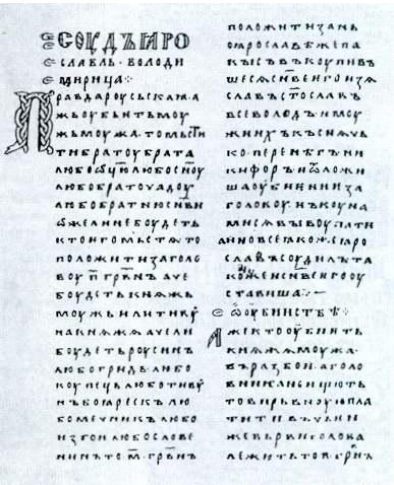 СОУДЪ ꙖРО
СЛАВЛЬ·ВОЛОДИ
МИРИЦА
Правда роусьскаꙗ·а
жь оубьѥть моу
жь моужа·то мьсти
ти братоу брата
любо ѿцю любо сн҃оу
любо братоучадоу
любо братню сн҃ви
ѡже ли не боудеть
кто ѥго мьстѧ то
положити за голо
воу п҃ грв҃нъ аче
боудеть кнѧжь
моужь или тиву҃
на кнѧжѧ аче ли
боудеть роусинъ
любо гридь любо
коупець любо тиву҃
нъ боꙗрескъ любо
мечникъ любо
изгои любо слове
нинъ то м҃ грв҃нъ
положити за нь
по ꙗрославѣ же па
кы съвъкоупивъ
шесѧ сн҃ве ѥго изѧ
славъ ст҃ославъ
всеволодъ и моу
жи ихъ къснѧчь
ко перенѣгъ ни
кифоръ и ѿложи
ша оубиениѥ за
головоу нъ коуна
ми сѧ выкоупати
а ино все ꙗко же ꙗро
славъ соудилъ та
ко же и сн҃ве ѥго оу
ставиша
ѡ оубииствѣ
Аже кто оубиѥть
кнѧжѧ моужа
въ разбои а голо
вника не ищють
то вирьвноую пла
тити въ чьѥи
же вьрви голова
лежить то п҃ грв҃нъ